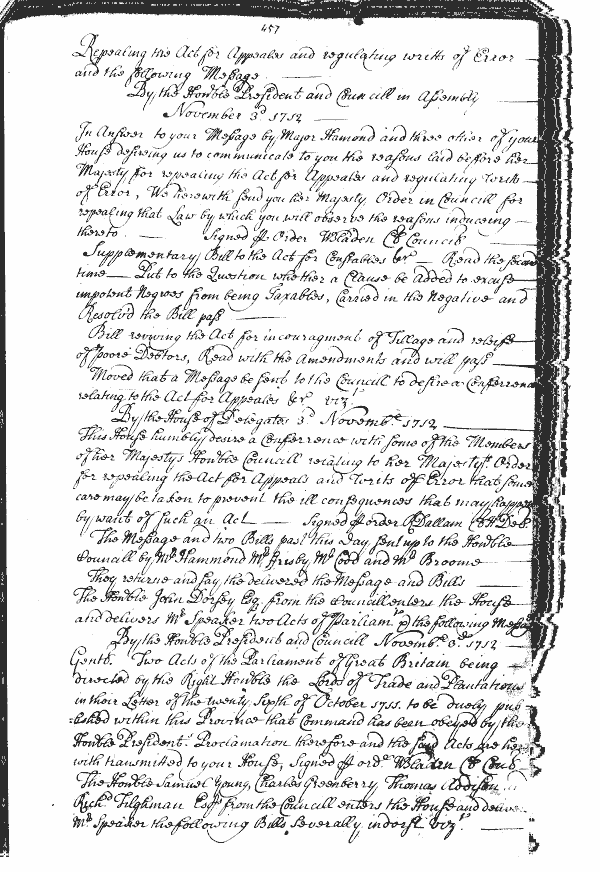 457
Repealing the Act for Appeales and regulating writts of Error
and the following Message
By the Honble President and Councill in Assembly
November 3d 1712
In Answer to your Message by Major Hamond and three other of your
House desireing us to communicate to you the reasons laid before her
Majesty for repealing the Act for Appeales and regulating Writts
of Error, We herewith send you her Majestys Order in Councill for
repealing that Law by which you will observe the reasons inducing
thereto Signed p Order WBladen Cl Council
Supplementary Bill to the Act for Constables &r Read the second
time Put to the Question whether a Clause be added to excuse
impotent Negroes from being Taxables, Carried in the Negative and
Resolved the Bill pass
Bill reviving the Act for incouragment of Tillage and releife
of poore Debtors, Read with the Amendments and will pass
Moved that a Message be sent to the Councill to desire a Conferrence
relating to the Act for Appeales &r vizt
By the House of Delegates 3d Novembr 1712
This House humbly desire a Conferrence with some of the Members
of her Majestys Honble Councill relating to her Majestys Order
for repealing the Act for Appeals and Writts of Error that some
care may be taken to prevent the ill consequences that may happen
by want of such an Act Signed p order RDallam Cl H Del
The Message and two Bills past this Day sent up to the Honble
Councill by Mr Hammond Mr Frisby Mr Cod and Mr Broome
They returne and say the delivered the Message and Bills
The Honble John Dorsey Esq. from the Councill enters the House
and delivers Mr Speaker two Acts of Parliamt p the following Message
By the Honble President and Councill Novembr 3d 1712
Gents. Two Acts of the Parliament of Great Britain being
directed by the Right Honble the Lords of Trade and Plantations
in their Letter of the twenty sixth of October 1711. to be duely pub
=lished within this Province that Command has been obeyed by the
Honble Presidents Proclamation therefore and the said Acts are here
with transmitted to your House, Signed p ordr WBladen Cl Coun
The Honble Samuel Young, Charles Greenberry, Thomas Addison
Richd Tilghman Esqrs from the Councill enters the House and deliver
Mr Speaker the following Bills severally indorst vizt